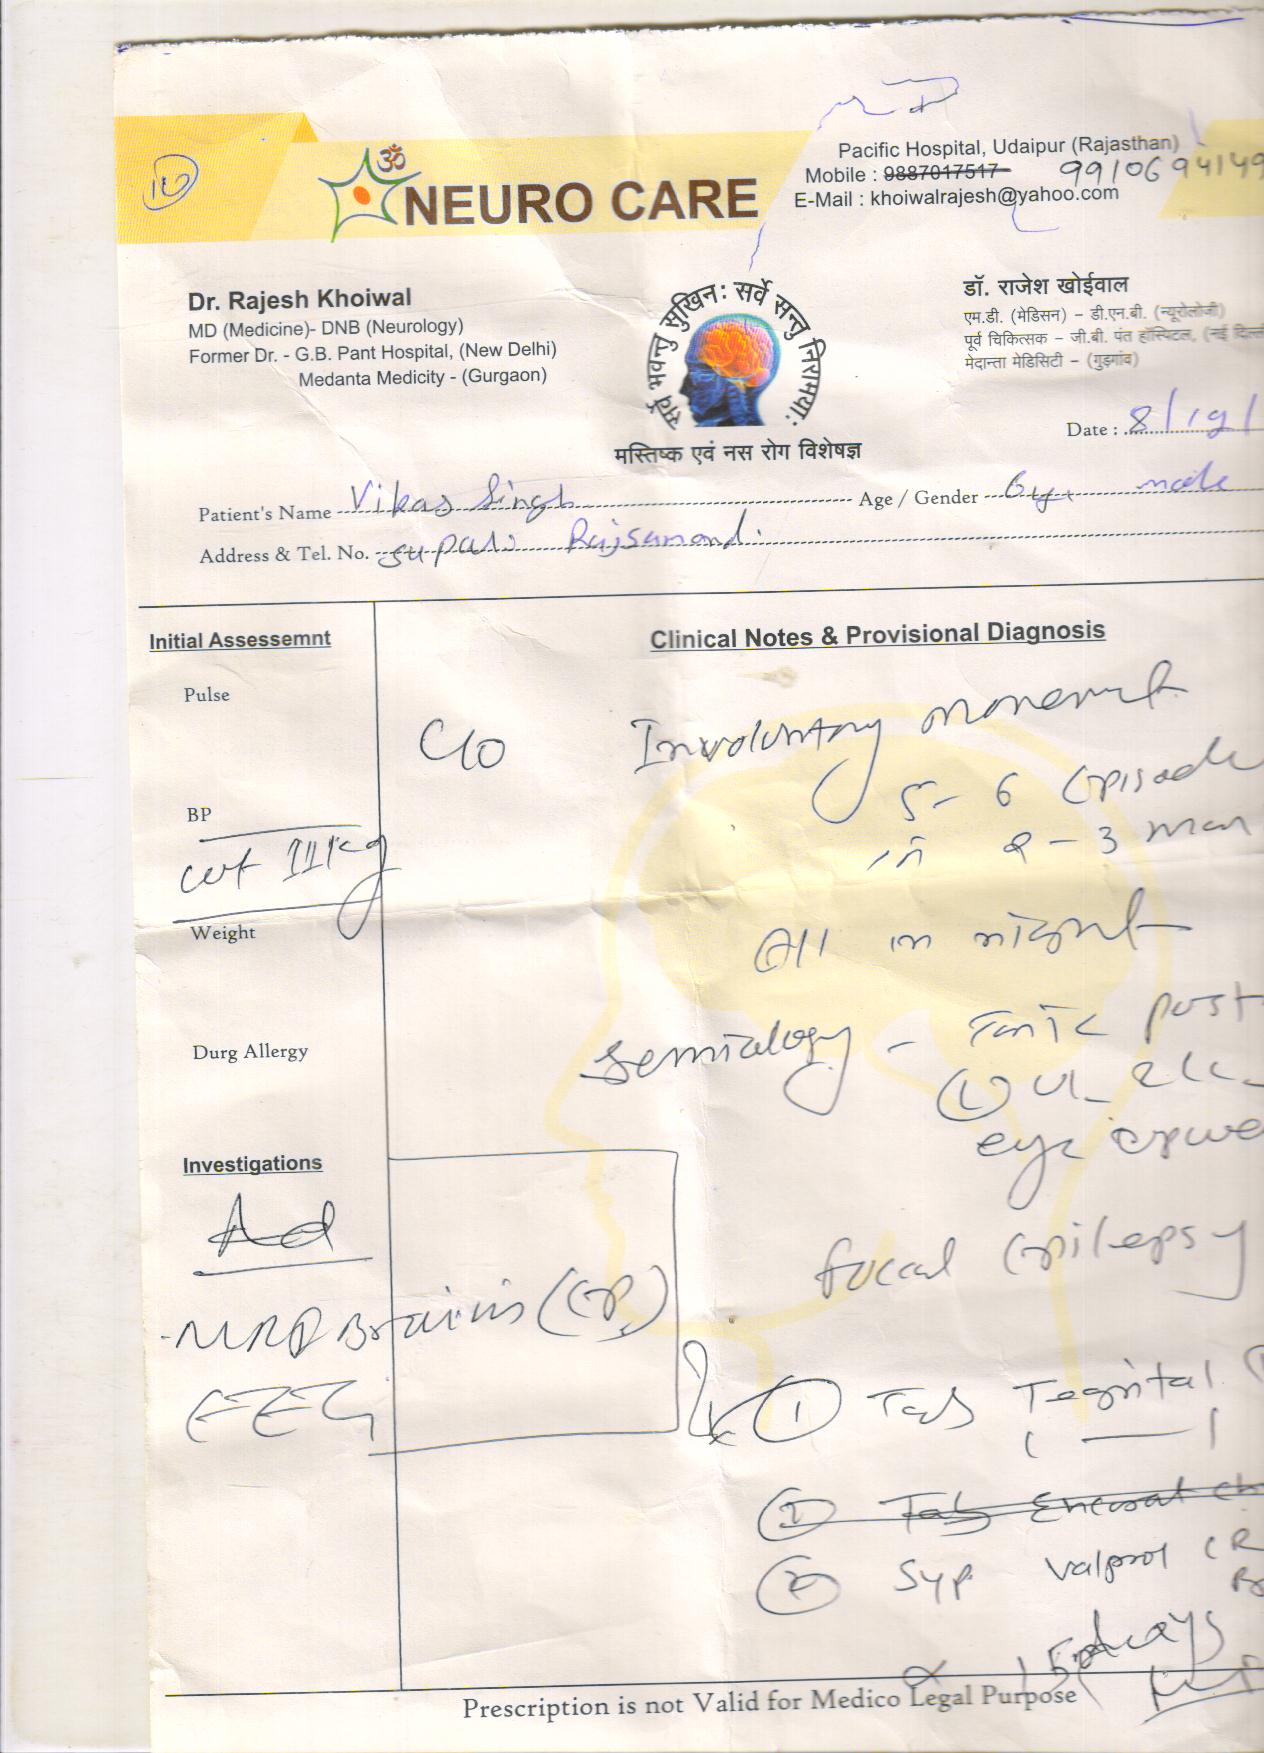 10
ॐ
NEURO CARE
Pacific Hospital, Udaipur (Rajasthan)
Mobile : 9887017517 9910694149
E-Mail : khoiwalrajesh@yahoo.com
Dr. Rajesh Khoiwal
MD (Medicine)- DNB (Neurology)
Former Dr. - G.B. Pant Hospital, (New Delhi)
Medanta Medicity - (Gurgaon)
सर्वे भवन्तु सुखिनः सर्वे सन्तु निरामयाः
मस्तिष्क एवं नस रोग विशेषज्ञ
डॉ. राजेश खोईवाल
एम.डी. (मेडिसन) – डी.एन.बी. (न्यूरोलोजी)
पूर्व चिकित्सक – जी.बी. पंत हॉस्पिटल, (नई दिल्ली
मेदान्ता मेडिसिटी – (गुड़गांव)
Date : 8/19/
Patient's Name Vikas Singh Age / Gender 6yr male
Address & Tel. No. Rajsamand.
Initial Assessemnt
Clinical Notes & Provisional Diagnosis
Pulse
C/o Involuntary movement
5-6 episode
in 2-3
BP
wt 11kg
Weight
All in night
Durg Allergy
Semiology - Tonic post
(L) UL
eye
Investigations
Ad
focal epilepsy
MRI Brain (EP)
EEG
1 Tab Tegrital
2 Tab Encorat Ch
2 Syp Valprol CR
x 15 days
Prescription is not Valid for Medico Legal Purpose